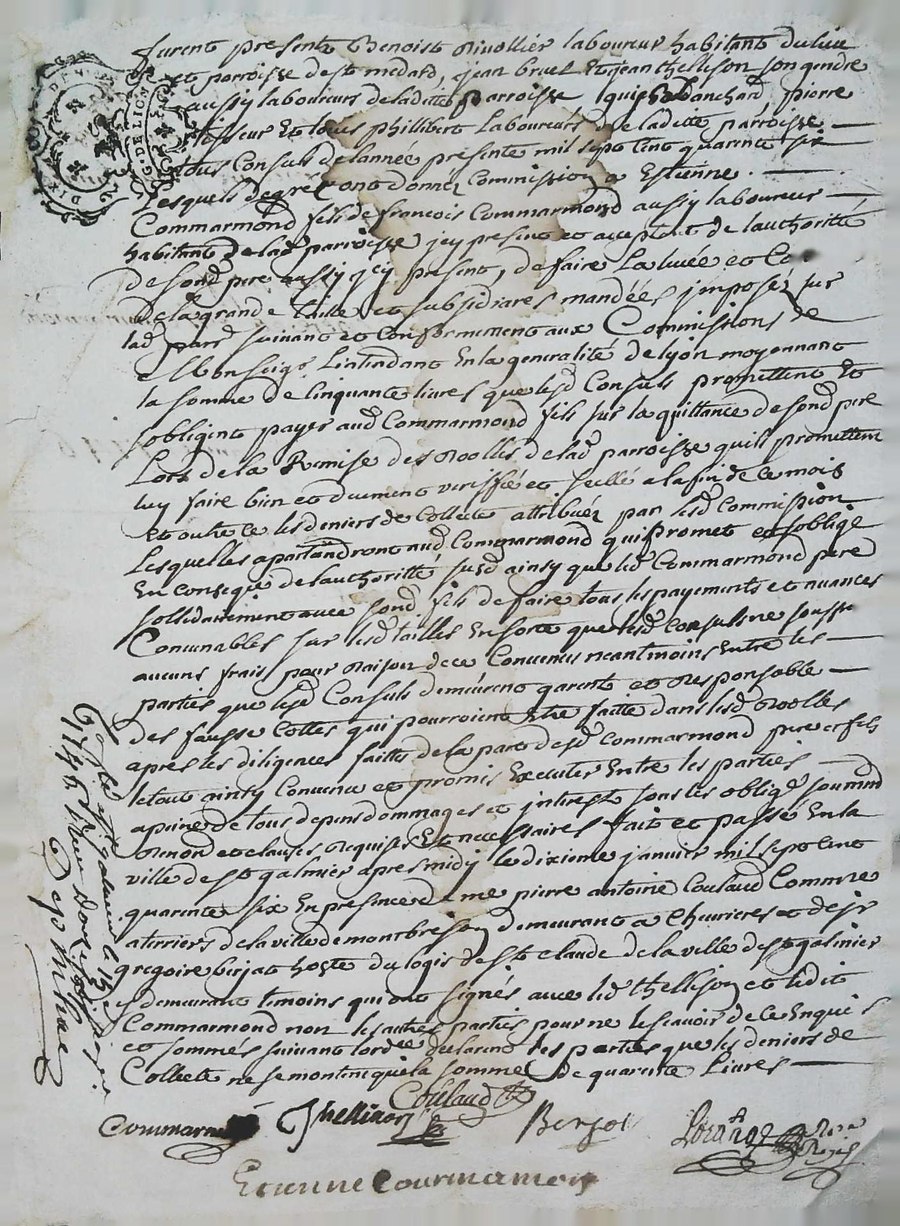 G. DE LION
furent presents Benoist Rivollier laboureur habitant du lieu
et parroisse de st medard, jean bruel Et jean thellison son gendre
aussy laboureurs de ladite parroisse Blanchard, pierre
Et louis phillibert Laboureurs de ladette parroisse
tous Consuls de lannée presente mil sept cent quarente six
Lesquels de gré ont donnéz Commission a Estienne
Commarmond fils de francois Commarmond aussy laboureur
habitant de lad parroisse jcy present et acceptent de lauthorité
de sond pere aussy jcy present, de faire La luée et
de la grande Taille et subsidiares mandées jmposéz sur
lad parr suivant et Conformement aux Commissions de
Monseigr Lintendant En la generalité de lyon moyennant
la somme de Cinquante livres que lesd Consuls promettent Et
sobligent payer aud Commarmond fils sur la quittance de sond pere
Lors de la Remise des Roolles de lad parroisse quils promettent
luy faire bien et duement veriffié et scellé a la fin de ce mois
Et outre ce les deniers de Collecte attribuéz par lesd Commission
Lesquelles apartiendront aud Commarmond qui promet et soblige
En conseqce de lauthorité susd ainsy que led Commarmond pere
sollidairement avec sond fils de faire tous les payements et avances
Convenables sur lesd tailles En sorte que lesd Consuls ne
aucuns frais pour Raison de ce Convenu neantmoins Entre les
parties que lesd Consuls demeurent garent et Responsable
des fausse Cottes qui pourroient Etre faitte dans lesd Roolles
apres les diligences faittes de la part desd Commarmond pere et fils
le tout ainsy Convenu et promis Executer Entre les parties
a peine de tous depens dommages et jnterest sous les obligé soummd
Renond et clauses Requises Et necessaires fait et passé En la
ville de st galmier apres midy le dixieme janvier mil sept cent
quarente six En presence de me pierre antoine Coulaud Commre
a terriers de la ville de montbrison demeurant a Chevrieres et de sr
gregoire hoste du logis de st Claude de la ville de st galmier
y demeurant temoins qui ont signés avec led thellison et ledit
Commarmond non les autres parties pour ne le scavoir de ce Enquis
et sommés suivant lordce declarent les parties que les deniers de
Collecte ne se montent qua la somme de quarente Livres
Coulaud
Thellison
Etienne Courmamon